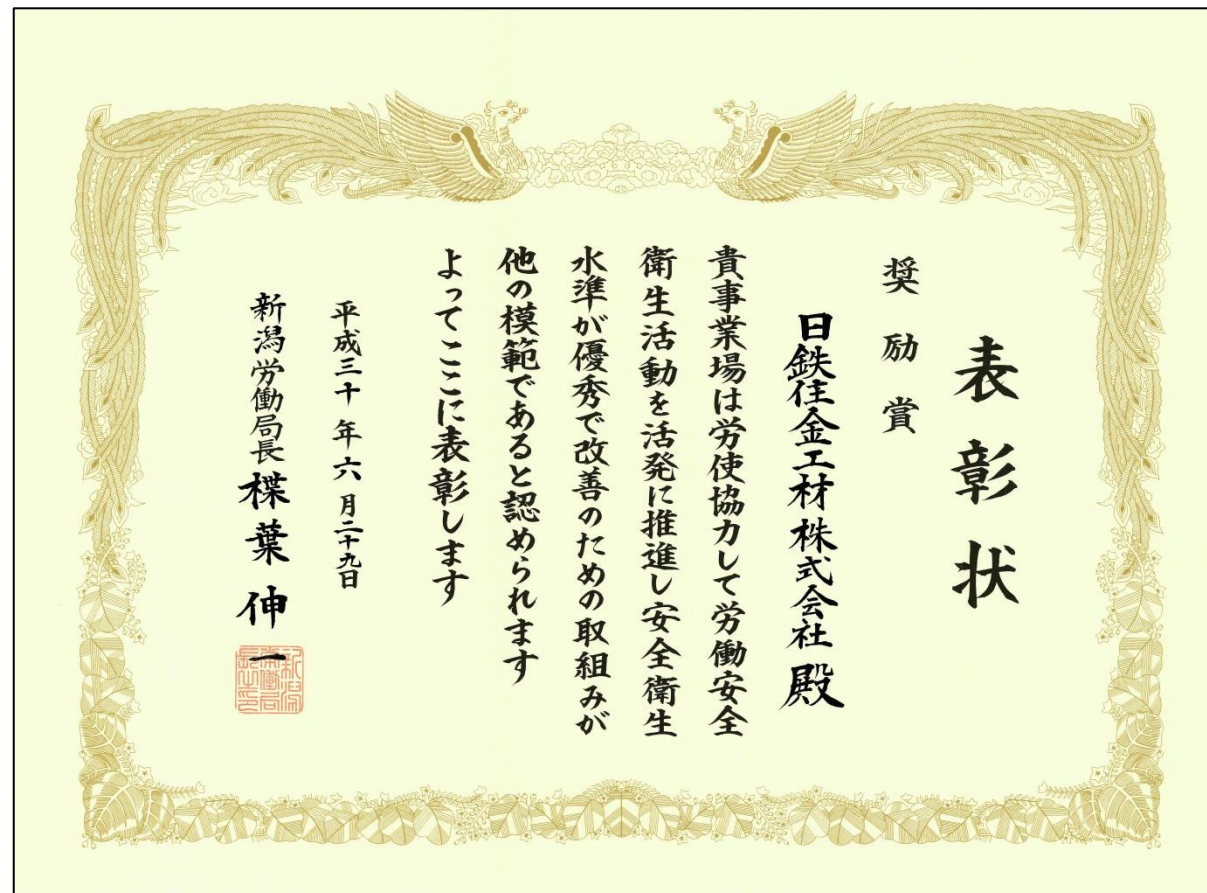 表彰状
奨励賞
日鉄住金工材株式会社 殿
貴事業場は労使協力して労働安全
衛生活動を活発に推進し安全衛生
水準が優秀で改善のための取組みが
他の模範であると認められます
よってここに表彰します
平成三十年六月二十九日
新潟労働局長 楪葉伸一
新潟労働局長之印